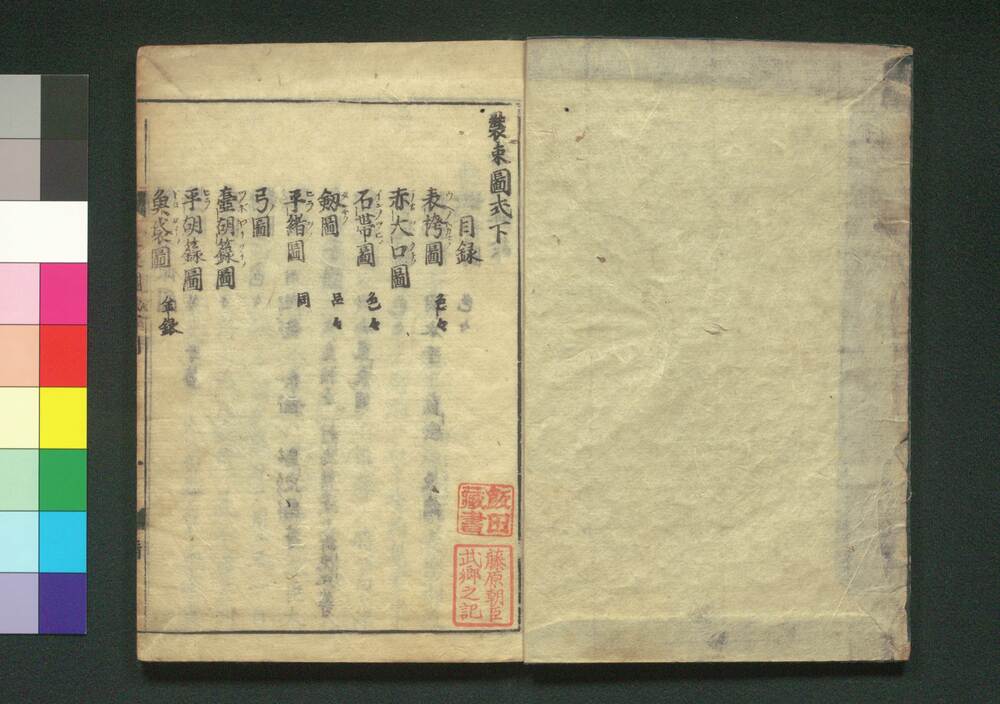 裝束圖式下
目録
表袴圖 色々
赤大口圖
石帶圖 色々
劔圖 色々
平緒圖 同
弓圖
壷胡籙圖
平胡籙圖
魚袋圖 金銀
飯田
藏書
藤原朝臣
武郷之記